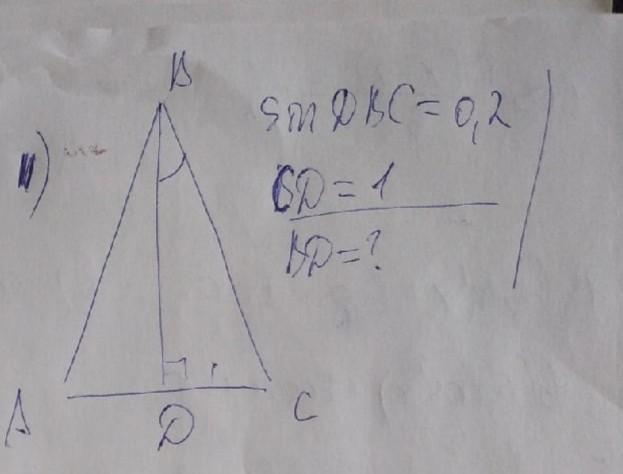 B
sin DBC = 0,2
CD = 1
BD = ?
A
D
C